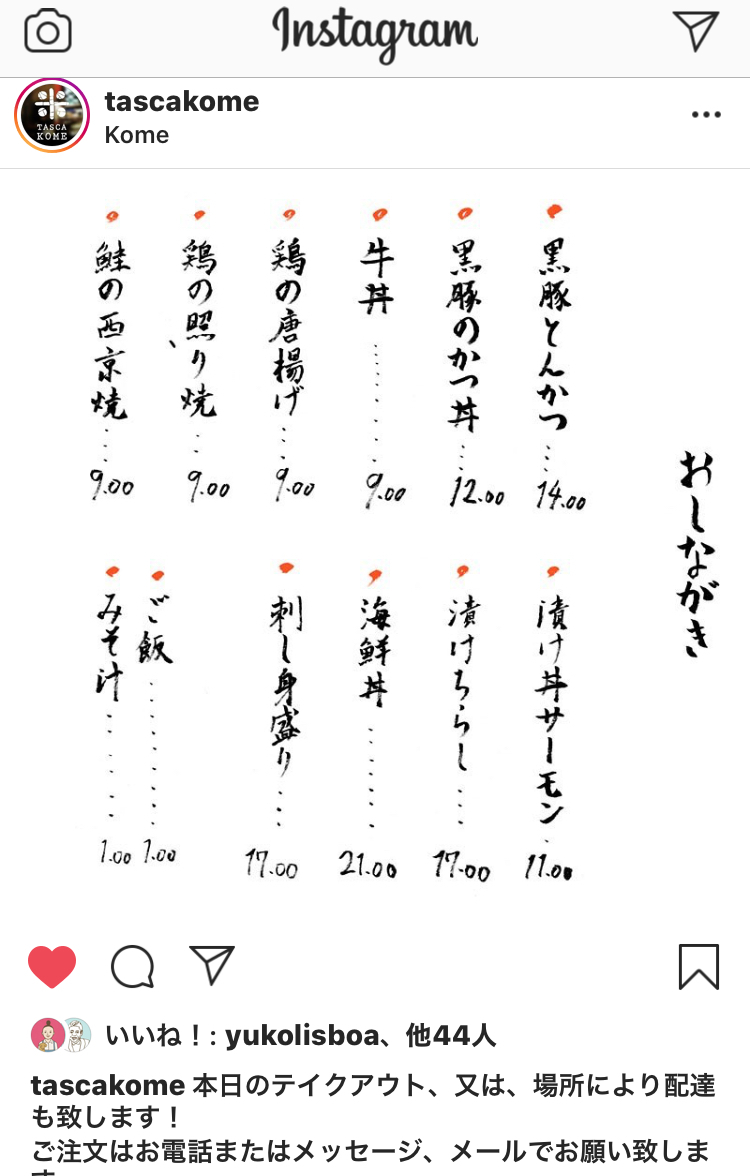 Instagram
tascakome
Kome
TASCA
KOME
おしながき
黒豚とんかつ...14.00
黒豚のかつ丼...12.00
牛丼.......9.00
鶏の唐揚げ...9.00
鶏の照り焼...9.00
鮭の西京焼...9.00
漬け丼サーモン.11.00
漬けちらし...17.00
海鮮丼......21.00
刺し身盛り...17.00
ご飯........1.00
みそ汁......1.00
いいね！: yukolisboa、他44人
tascakome 本日のテイクアウト、又は、場所により配達
も致します！
ご注文はお電話またはメッセージ、メールでお願い致しま